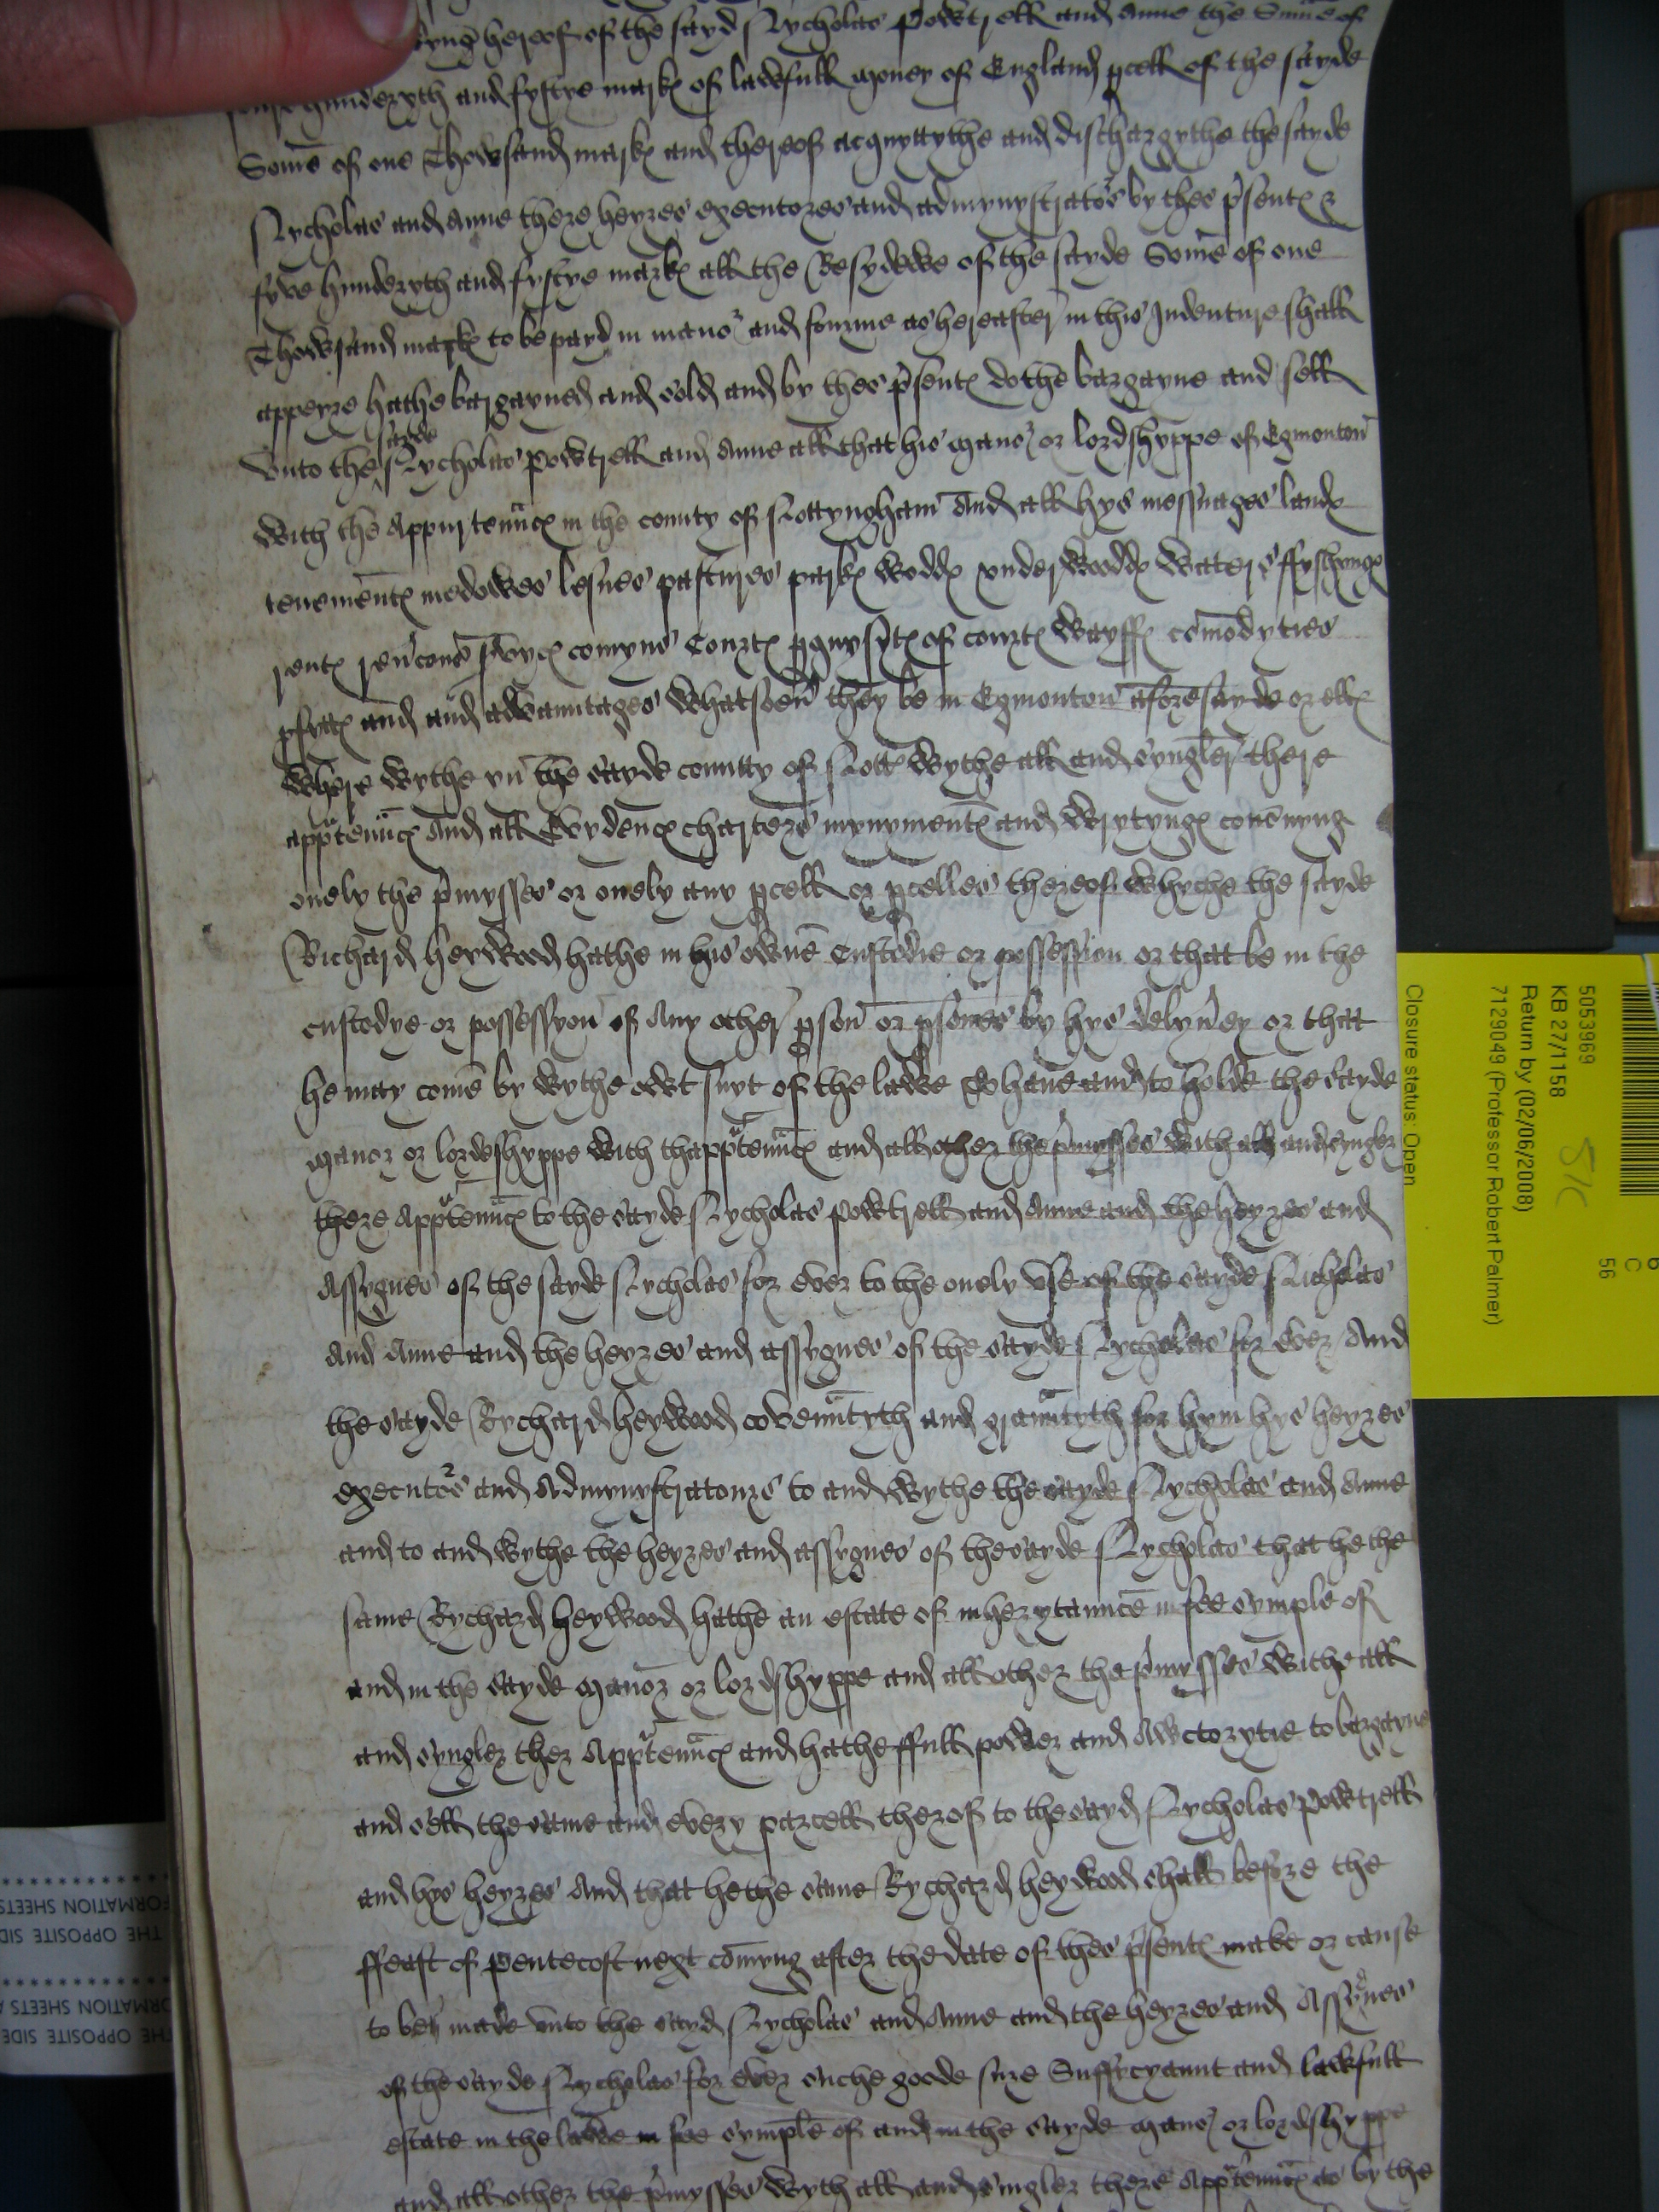 hereof of the sayd Nycholas Powtrell and Anne the Sume of
hunderyth and fyftye mark of lawfull money of England pcell of the sayde
Some of one Thowsand mark and thereof acquyttythe and dischargythe the sayde
Nycholas and Anne there heyres executores and admynystrators by thes psent &
fyve hunderyth and fyftye mark all the Resydewe of the sayde Some of one
Thowsand mark to be payd in maner and fourme as hereafter in this Indenture shall
appeyre hathe bargayned and sold and by thes psent dothe bargayne and sell
sayde
unto the Nycholas Powtrell and Anne all that his manor or lordshyppe of Egmonton
with the Appurtennc in the county of Nottyngham And all hys messuages land
tenement medowes lesues pastures park wodd underwoodd waters ffyshyng
rent revcons svyc comyns Court pquysyt of court wayff comodyties
pfytt and and advauntages whatsoev they be in Egmonton aforesayde or ell
where wythe yn the sayde countty of Nott wythe all and syngler there
apptennc And all Evydenc charters mynyment and wrytyng concnyng
onely the pmysses or onely any pcell or pcelles thereof whyche the sayde
Richard heywood hathe in his owne Custodie or possession or that be in the
custodye or possessyon of Any other pson or psones by hys delyvey or that
he may come by wythe owt suyt of the lawe To have and to holde the sayde
manor or lordeshyppe with thapptennc and all other the pmysses with all and syngler
there Apptennc to the sayde Nycholas Powtrell and Anne and the heyres and
Assygnes of the sayde Nycholas for ever to the onely use of the sayde Nicholas
And Anne and the heyres and assygnes of the sayde Nycholas for ever And
the sayde Rychard heywood covenntyth and graunntyth for hym hys heyres
executors and Admynystratours to and wythe the sayde Nycholas and Anne
and to and wythe the heyres and assygnes of the sayde Nycholas that he the
same Rychard heywood hathe an estate of inherytaunce in fee symple of
and in the sayde manor or lordshyppe and all other the pmysses withe all
and syngler ther Apptennc and hathe ffull power and Awctorytie to bargayne
and sell the same and every parcell therof to the sayd Nycholas Powtrell
and hys heyres And that he the same Rychard heywood shall before the
ffeast of pentecost next comyng after the date of thes psent make or cause
to be made unto the sayd Nycholas and Anne and the heyres and Assynes
of the sayde Nycholas for ever suche goode sure Suffycyaunt and lawfull
estate in the lawe in fee symple of and in the sayde manor or lordshyppe
and all other the pmysses wyth all and singler there Apptennc as by the
5053969
KB 27/1158
S/C
Return by (02/06/2008)
7129049 (Professor Robert Palmer)
Closure status: Open
C
56
FORMATION SHEETS
THE OPPOSITE SID
ORMATION SHEETS
THE OPPOSITE SIDE